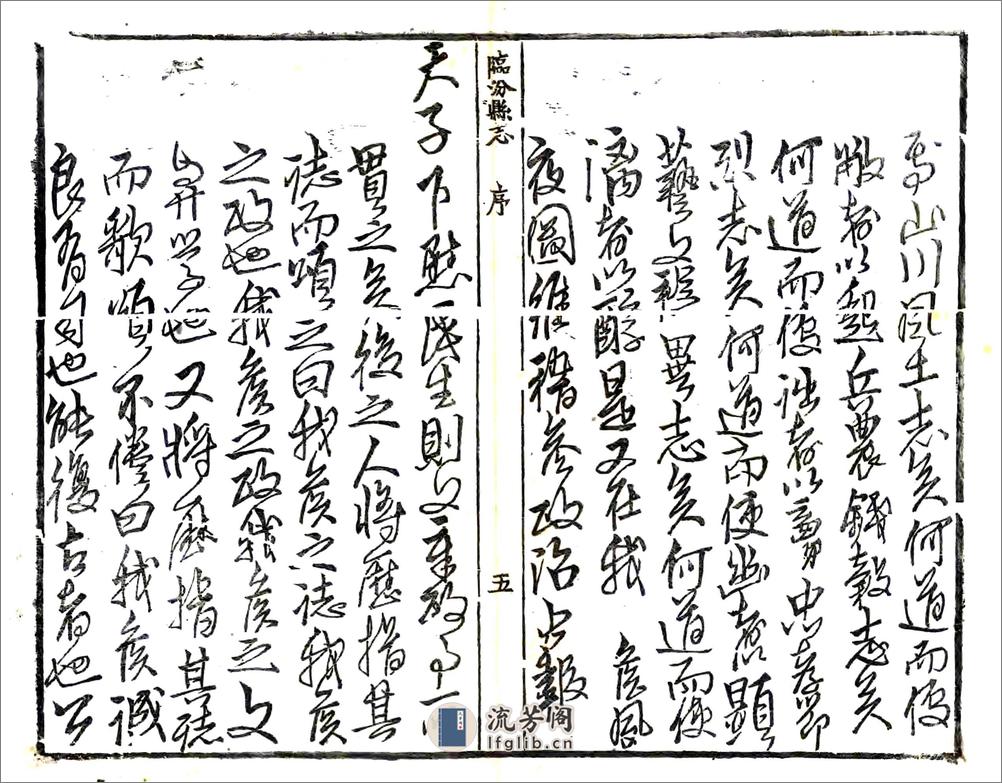 山川風土志矣何道而使
敝者以起兵農錢穀志矣
何道而使詘者以忠孝節
烈志矣何道而使幽者顯
藝文祲異志矣何道而使
漓者以醇是又在我 侯夙
夜圖維參政治上報
臨汾縣志 序 五
天子下慰民生則文章政事一
貫之矣後之人將歷指其
誌而頌之曰我侯之誌我侯
之政也我侯之政我侯之文
學也又將歷指其誌
而歌頌不倦曰我侯誠
良有司也能復古者也公
流芳阁
lfglib.cn